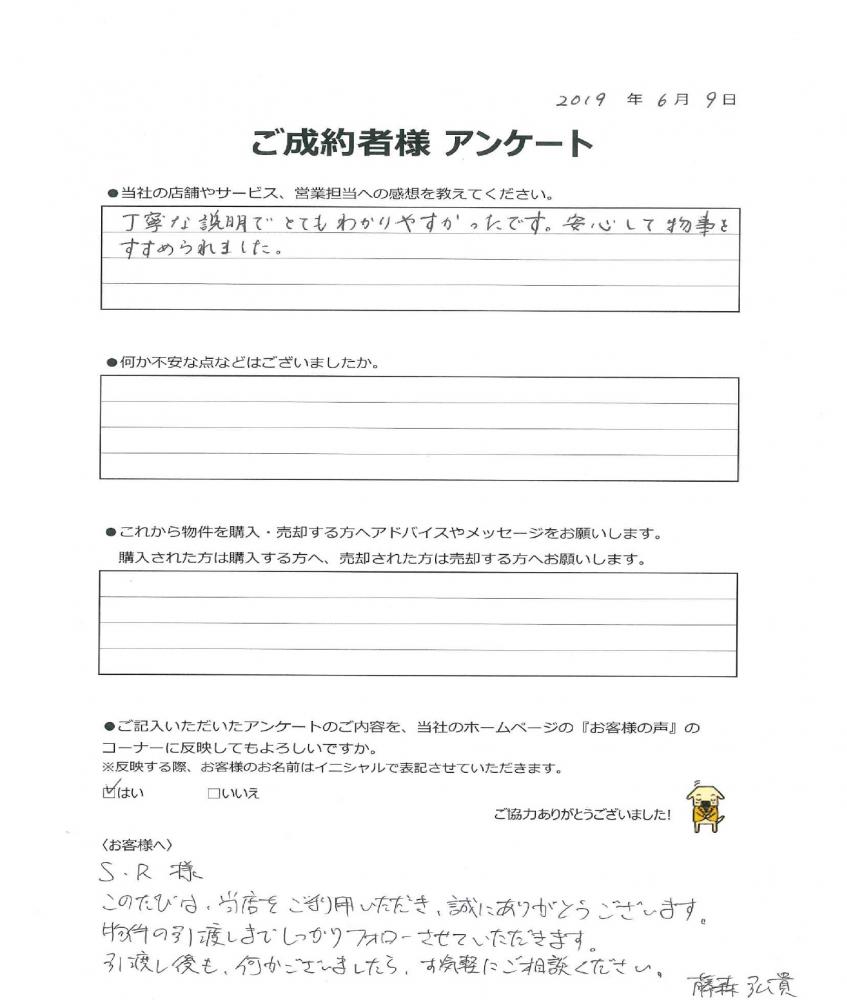 2019 年 6 月 9 日
ご成約者様 アンケート
●当社の店舗やサービス、営業担当への感想を教えてください。
丁寧な説明でとてもわかりやすかったです。安心して物事を
すすめられました。
●何か不安な点などはございましたか。
●これから物件を購入・売却する方へアドバイスやメッセージをお願いします。
購入された方は購入する方へ、売却された方は売却する方へお願いします。
●ご記入いただいたアンケートのご内容を、当社のホームページの『お客様の声』の
コーナーに反映してもよろしいですか。
※反映する際、お客様のお名前はイニシャルで表記させていただきます。
☑はい □いいえ
ご協力ありがとうございました!
〈お客様へ〉
S.R 様
このたびは、当店をご利用いただき、誠にありがとうございます。
物件の引渡しまでしっかりフォローさせていただきます。
引渡し後も、何かございましたら、お気軽にご相談ください。
藤森 弘貴